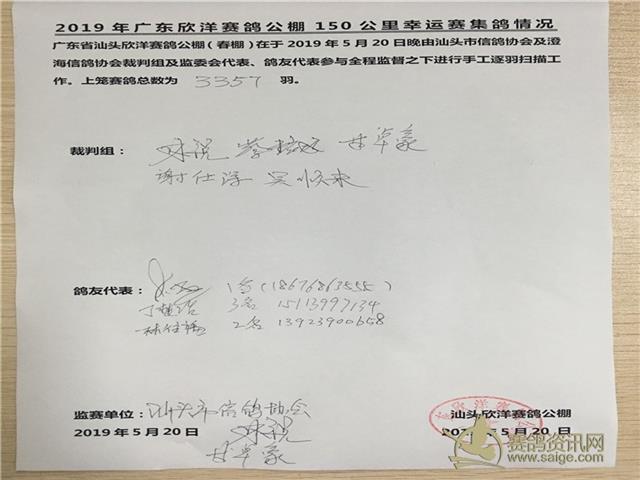 2019年广东欣洋赛鸽公棚150公里幸运赛集鸽情况
广东省汕头欣洋赛鸽公棚（春棚）在于2019年5月20日晚由汕头市信鸽协会及澄
海信鸽协会裁判组及监委会代表、鸽友代表参与全程监督之下进行手工逐羽扫描工
作。上笼赛鸽总数为 3357 羽。
裁判组：
谢仕浮 吴顺来
鸽友代表： 1名(18676863555)
3名 15113997134
2名 13923900658
监赛单位：汕头市信鸽协会 汕头欣洋赛鸽公棚
2019年5月20日 5月20日
赛鸽资讯网
www.saige.com